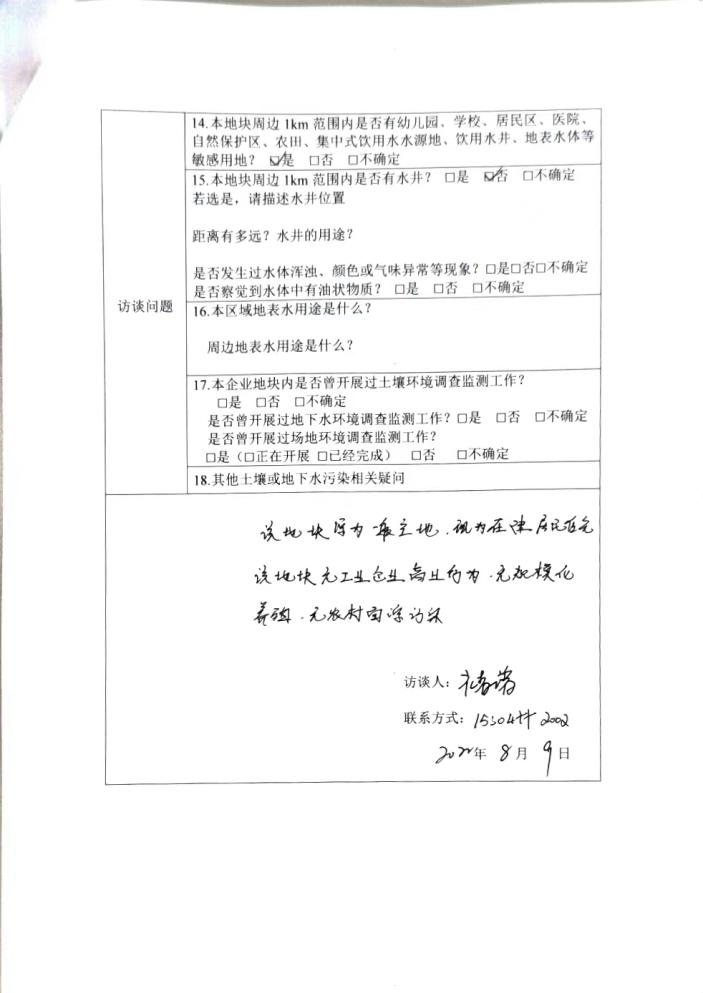 14.本地块周边 1km 范围内是否有幼儿园、学校、居民区、医院、
自然保护区、农田、集中式饮用水水源地、饮用水井、地表水体等
敏感用地？ ☑是 □否 □不确定
15.本地块周边 1km 范围内是否有水井？ □是 ☑否 □不确定
若选是，请描述水井位置
距离有多远？水井的用途？
是否发生过水体浑浊、颜色或气味异常等现象？□是□否□不确定
是否察觉到水体中有油状物质？ □是 □否 □不确定
访谈问题
16.本区域地表水用途是什么？
周边地表水用途是什么？
17.本企业地块内是否曾开展过土壤环境调查监测工作？
□是 □否 □不确定
是否曾开展过地下水环境调查监测工作？□是 □否 □不确定
是否曾开展过场地环境调查监测工作？
□是（□正在开展 □已经完成） □否 □不确定
18.其他土壤或地下水污染相关疑问
该地块原为 地、现为在建居民住宅
该地块无工业企业 行为、无规模化
养殖、无农村
访谈人：
联系方式：
年 8 月 9 日